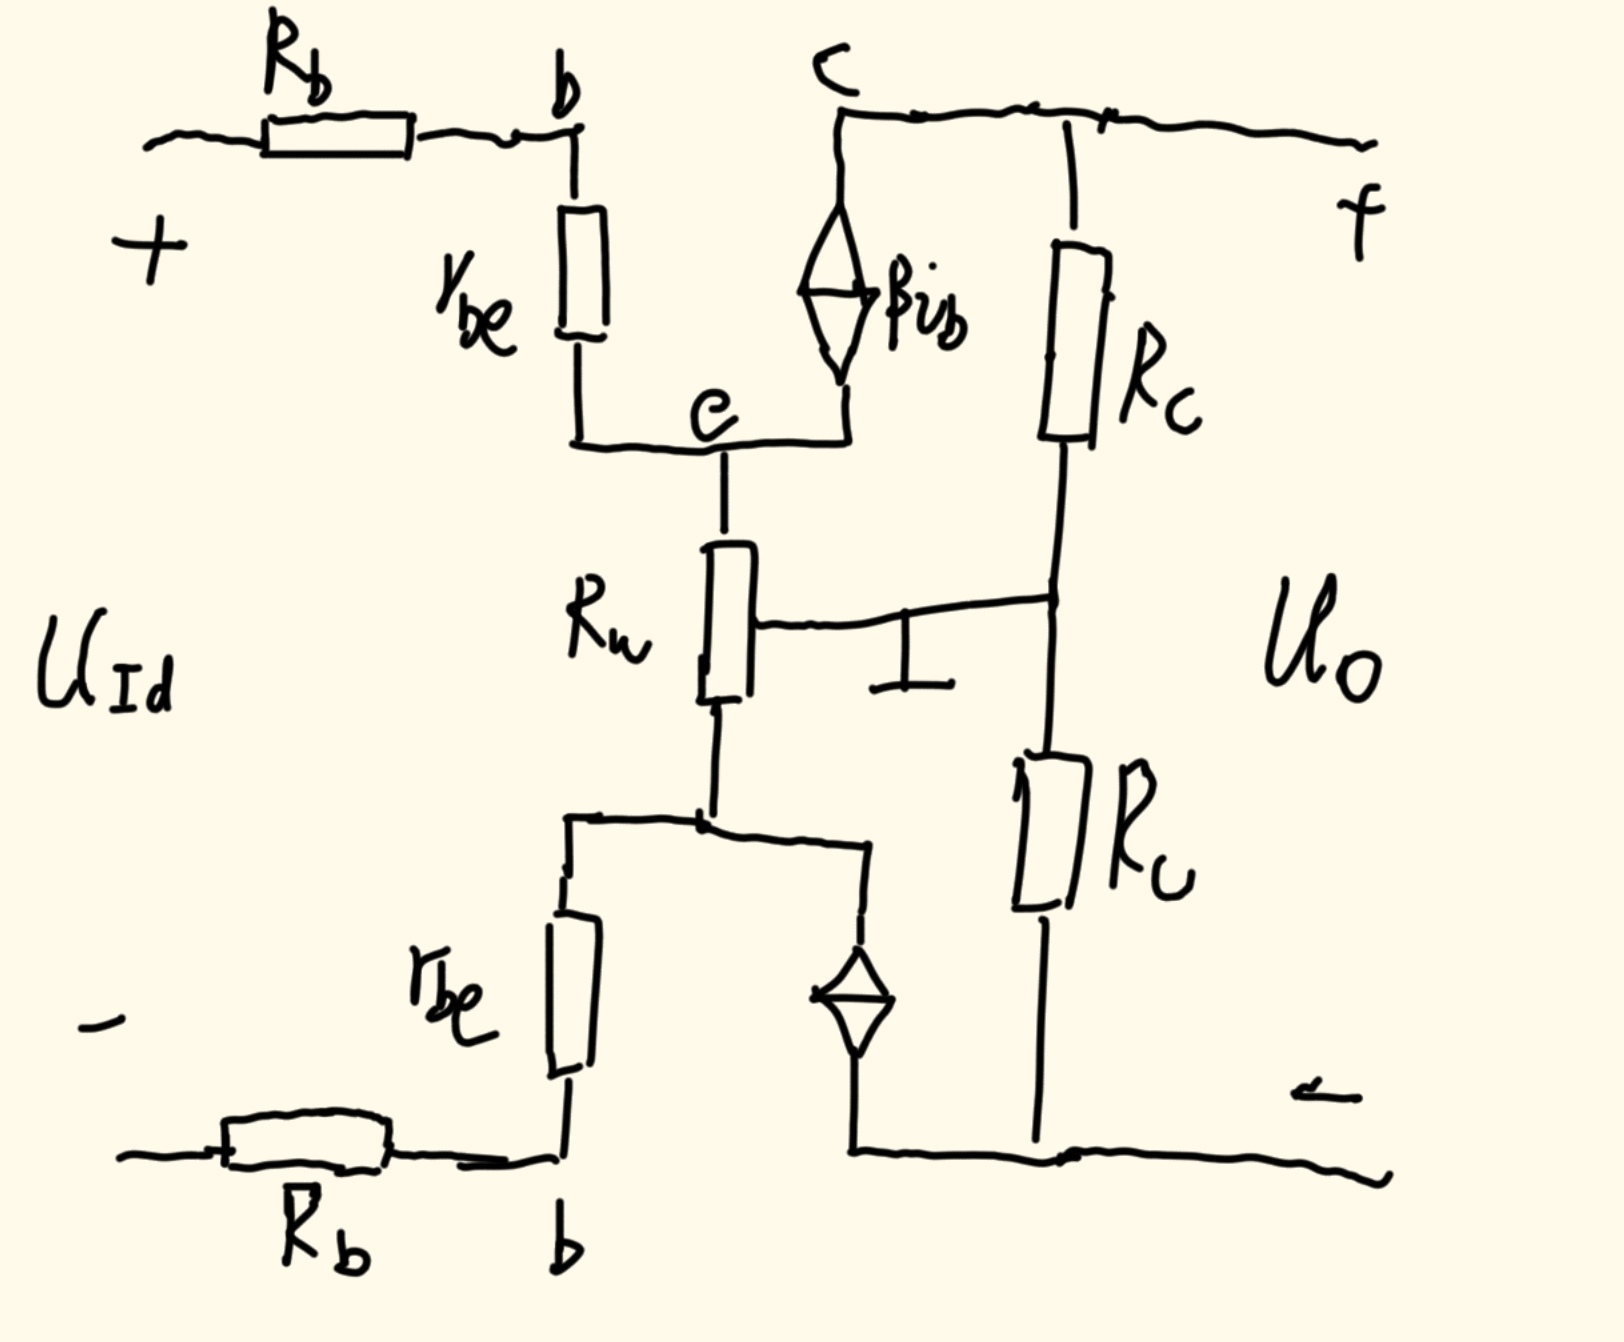 R_b
b
c
+
r_be
βi_b
e
R_c
R_w
U_Id
U_O
R_c
r_be
-
R_b
b